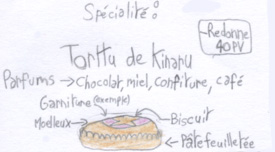 Spécialité :
Redonne
40 PV
Torttu de Kinapu
Parfums → Chocolat, miel, confiture, café
Garniture (exemple)
Moelleux
Biscuit
Pâte feuilletée